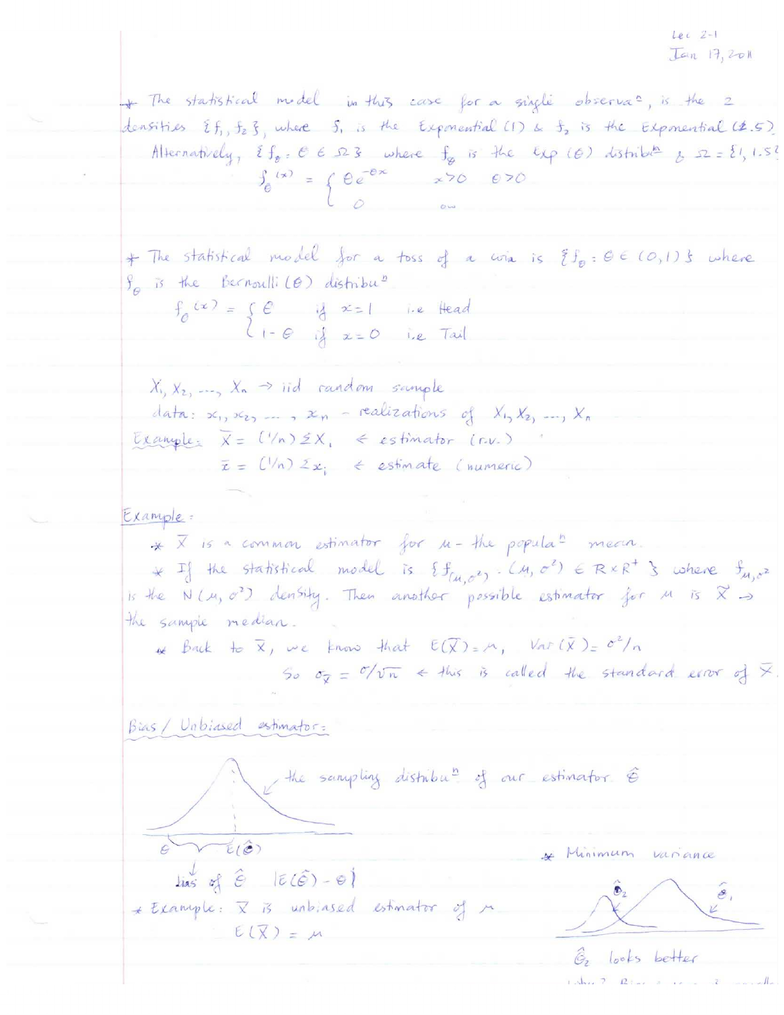 Lec 2-1
Jan 17, 2011
* The statistical model in this case for a single observaⁿ, is the 2
densities {f₁, f₂}, where f₁ is the Exponential (1) & f₂ is the Exponential (1.5)
Alternatively, {f_θ : θ ∈ Ω} where f_θ is the Exp (θ) distribuⁿ & Ω = {1, 1.5}
f_θ(x) = { θe^(-θx) x>0 θ>0
0 o.w
* The statistical model for a toss of a coin is {f_θ : θ ∈ (0,1)} where
f_θ is the Bernoulli (θ) distribuⁿ
f_θ(x) = { θ if x=1 i.e Head
1-θ if x=0 i.e Tail
X₁, X₂, ..., Xₙ → iid random sample
data: x₁, x₂, ..., xₙ - realizations of X₁, X₂, ..., Xₙ
Example: X̄ = (1/n) ΣXᵢ ← estimator (r.v.)
x̄ = (1/n) Σxᵢ ← estimate (numeric)
Example:
* X̄ is a common estimator for μ - the populaⁿ mean.
* If the statistical model is {f_(μ,σ²) : (μ, σ²) ∈ R×R⁺} where f_μ,σ²
is the N(μ, σ²) density. Then another possible estimator for μ is X̃ →
the sample median.
* Back to X̄, we know that E(X̄) = μ, Var(X̄) = σ²/n
So σ_X̄ = σ/√n ← this is called the standard error of X̄.
Bias / Unbiased estimator:
the sampling distribuⁿ of our estimator θ̂
θ E(θ̂)
bias of θ̂ |E(θ̂) - θ|
* Example: X̄ is unbiased estimator of μ
E(X̄) = μ
* Minimum variance
θ̂₂ θ̂₁
θ̂₂ looks better